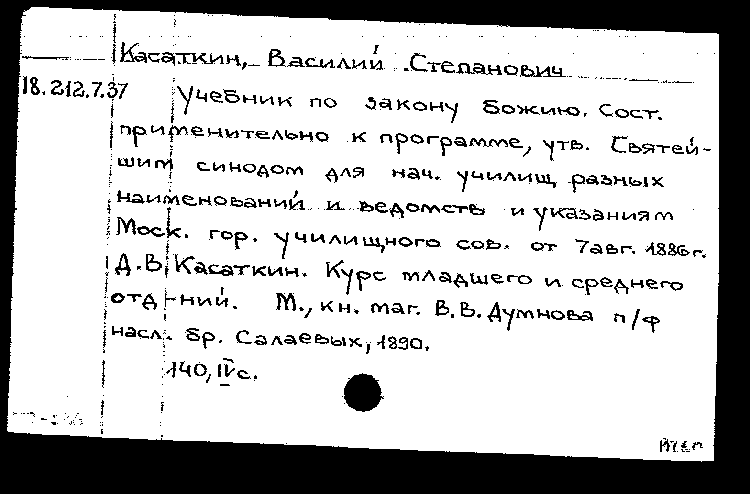 Касаткин, Василий Степанович
18.212.7.37 Учебник по закону божию. Сост.
применительно к программе, утв. Святей-
шим синодом для нач. училищ разных
наименований и ведомств и указаниям
Моск. гор. училищного сов. от 7 авг. 1886 г.
Д.В. Касаткин. Курс младшего и среднего
отд-ний. М., кн. маг. В.В. Думнова п/ф
насл. бр. Салаевых, 1890.
140, IV с.